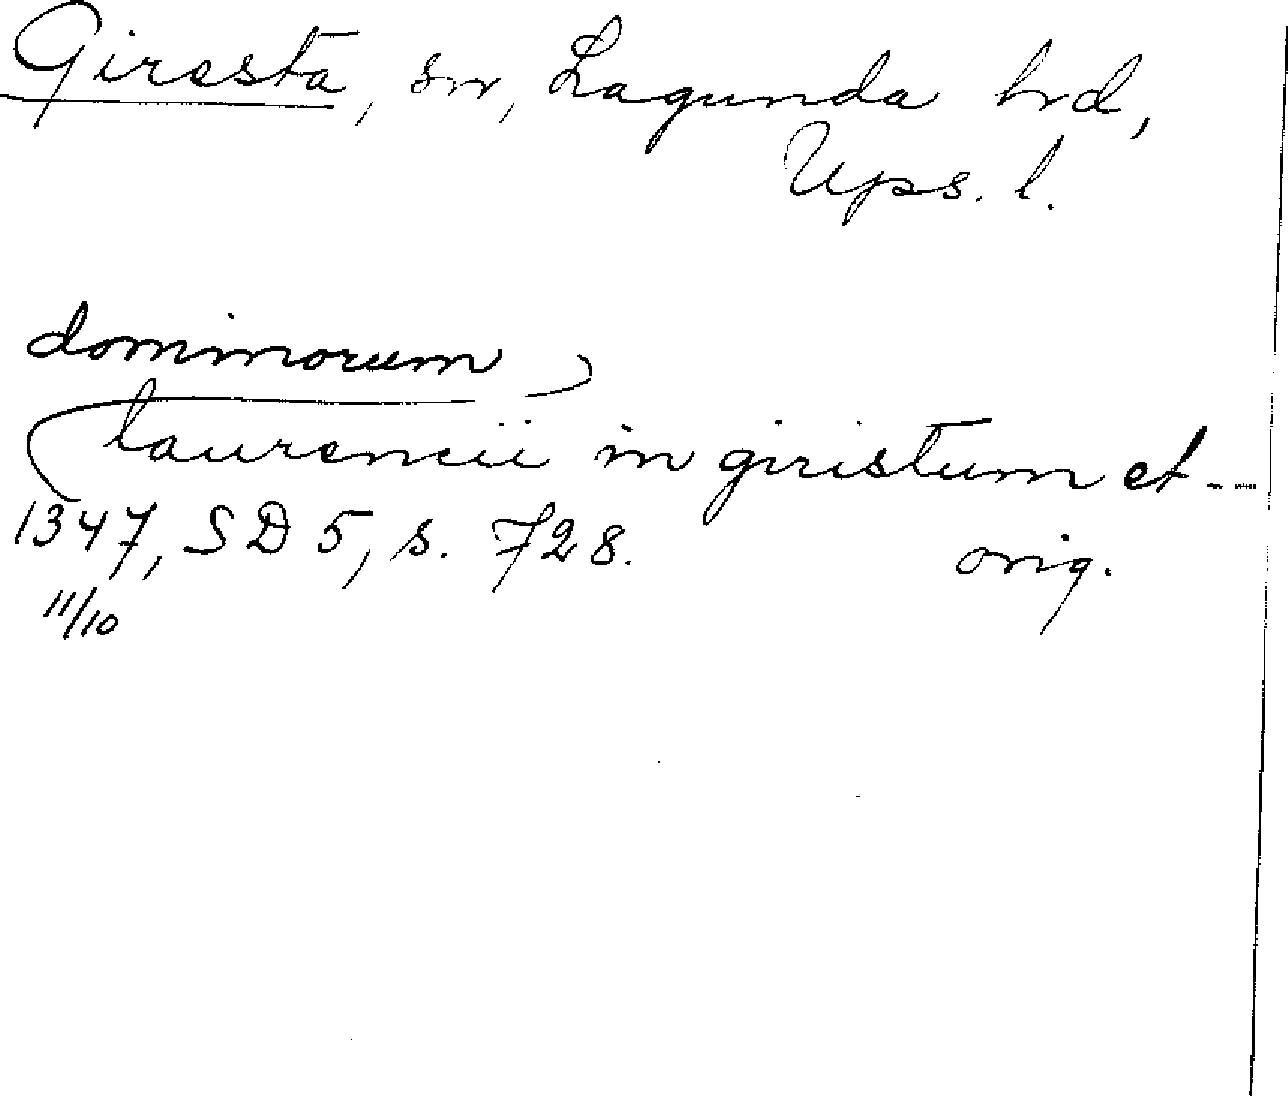 Giresta, sn, Lagunda hrd,
Ups. l.
dominorum
laurencii in giristum et ---
1347, SD 5, s. 728. orig.
11/10